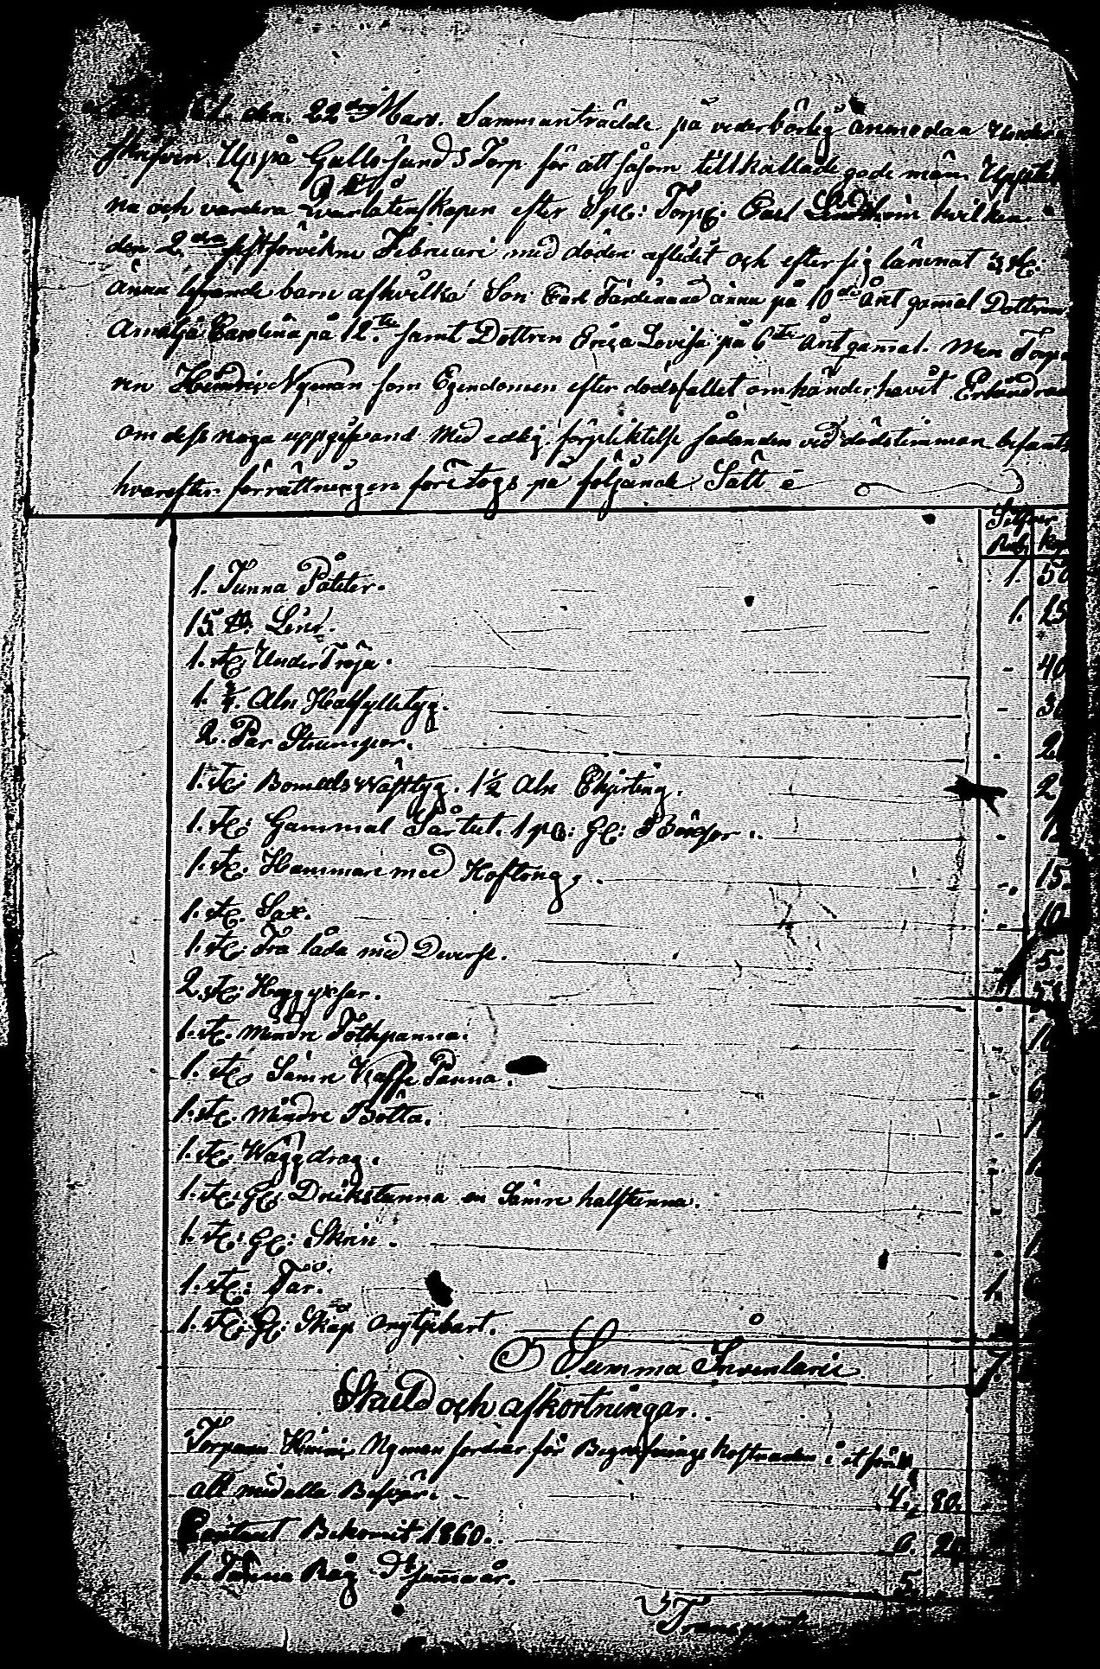 den. 22 dra Mars. Sammanträdde på vederbörlig anmodan Under
skrifven Uppå Gullösunds Torp för att såsom tillkallade gode män. Uppt
na och värdera Qvarlåtenskapen efter Spl: Torp: Carl Lindholm hvilken
den 2 dra sistförvikne Februari med döden aflidit och efter sig lämnat 3 st:
ännu lefvande barn af hvilka Son Carl Färdinand ännu på 10 de Året gamal Dottren
Amalja Carolina på 12. te samt Dottren Erica Lovisa på 6 te Året gamal. Men Torpa
ren Nyman som Egendomen efter dödsfallet omhänderhavit
om dess noga uppgifvand med edlig förpliktelse sådanden ved dödstimman befants
hvarefter förrättningen företogs på följande Sätt
Silfver
Rub. Kop
1. Tunna Påteter. 1. 50
15 ℔. Liner. 1. 25
1. st. UnderTröja. - 40
1. ¾. Aln Halfylletyg. -
2. Par Strumpor. -
1. st: Bomulls Wäfttyg. 1½ Aln Ekjorting.
1. st: Gammal Sårtut. 1 pa: Gl: -
1. st. Hammare med Hoftong. - 15.
1. st. Sax. - 10
1. st: Trä låda med Diverse. - 5.
2. st: Huggyxsar.
1. st. Mindre Fothpanna. -
1. st. Sämre Kaffe Panna. -
1. st. Mindre Bötta. -
1. st. Wäggdrag. -
1. st. Gl: Drikstunna en Sämre halftunna. -
1. st: Gl: Skrin. -
1. st: Får. 1.
1. st: Gl: Skåp onytjebart.
Summa Inventarie 7.
Skuld och afkortningar.
Torparn Nyman fordrar för Begrafnings kostnaden i
alt med alla Besvär. 4. 80.
Contant Bekomit 1860. 6. 20
1. Tunna Råg Dt Januar. 5
Transport